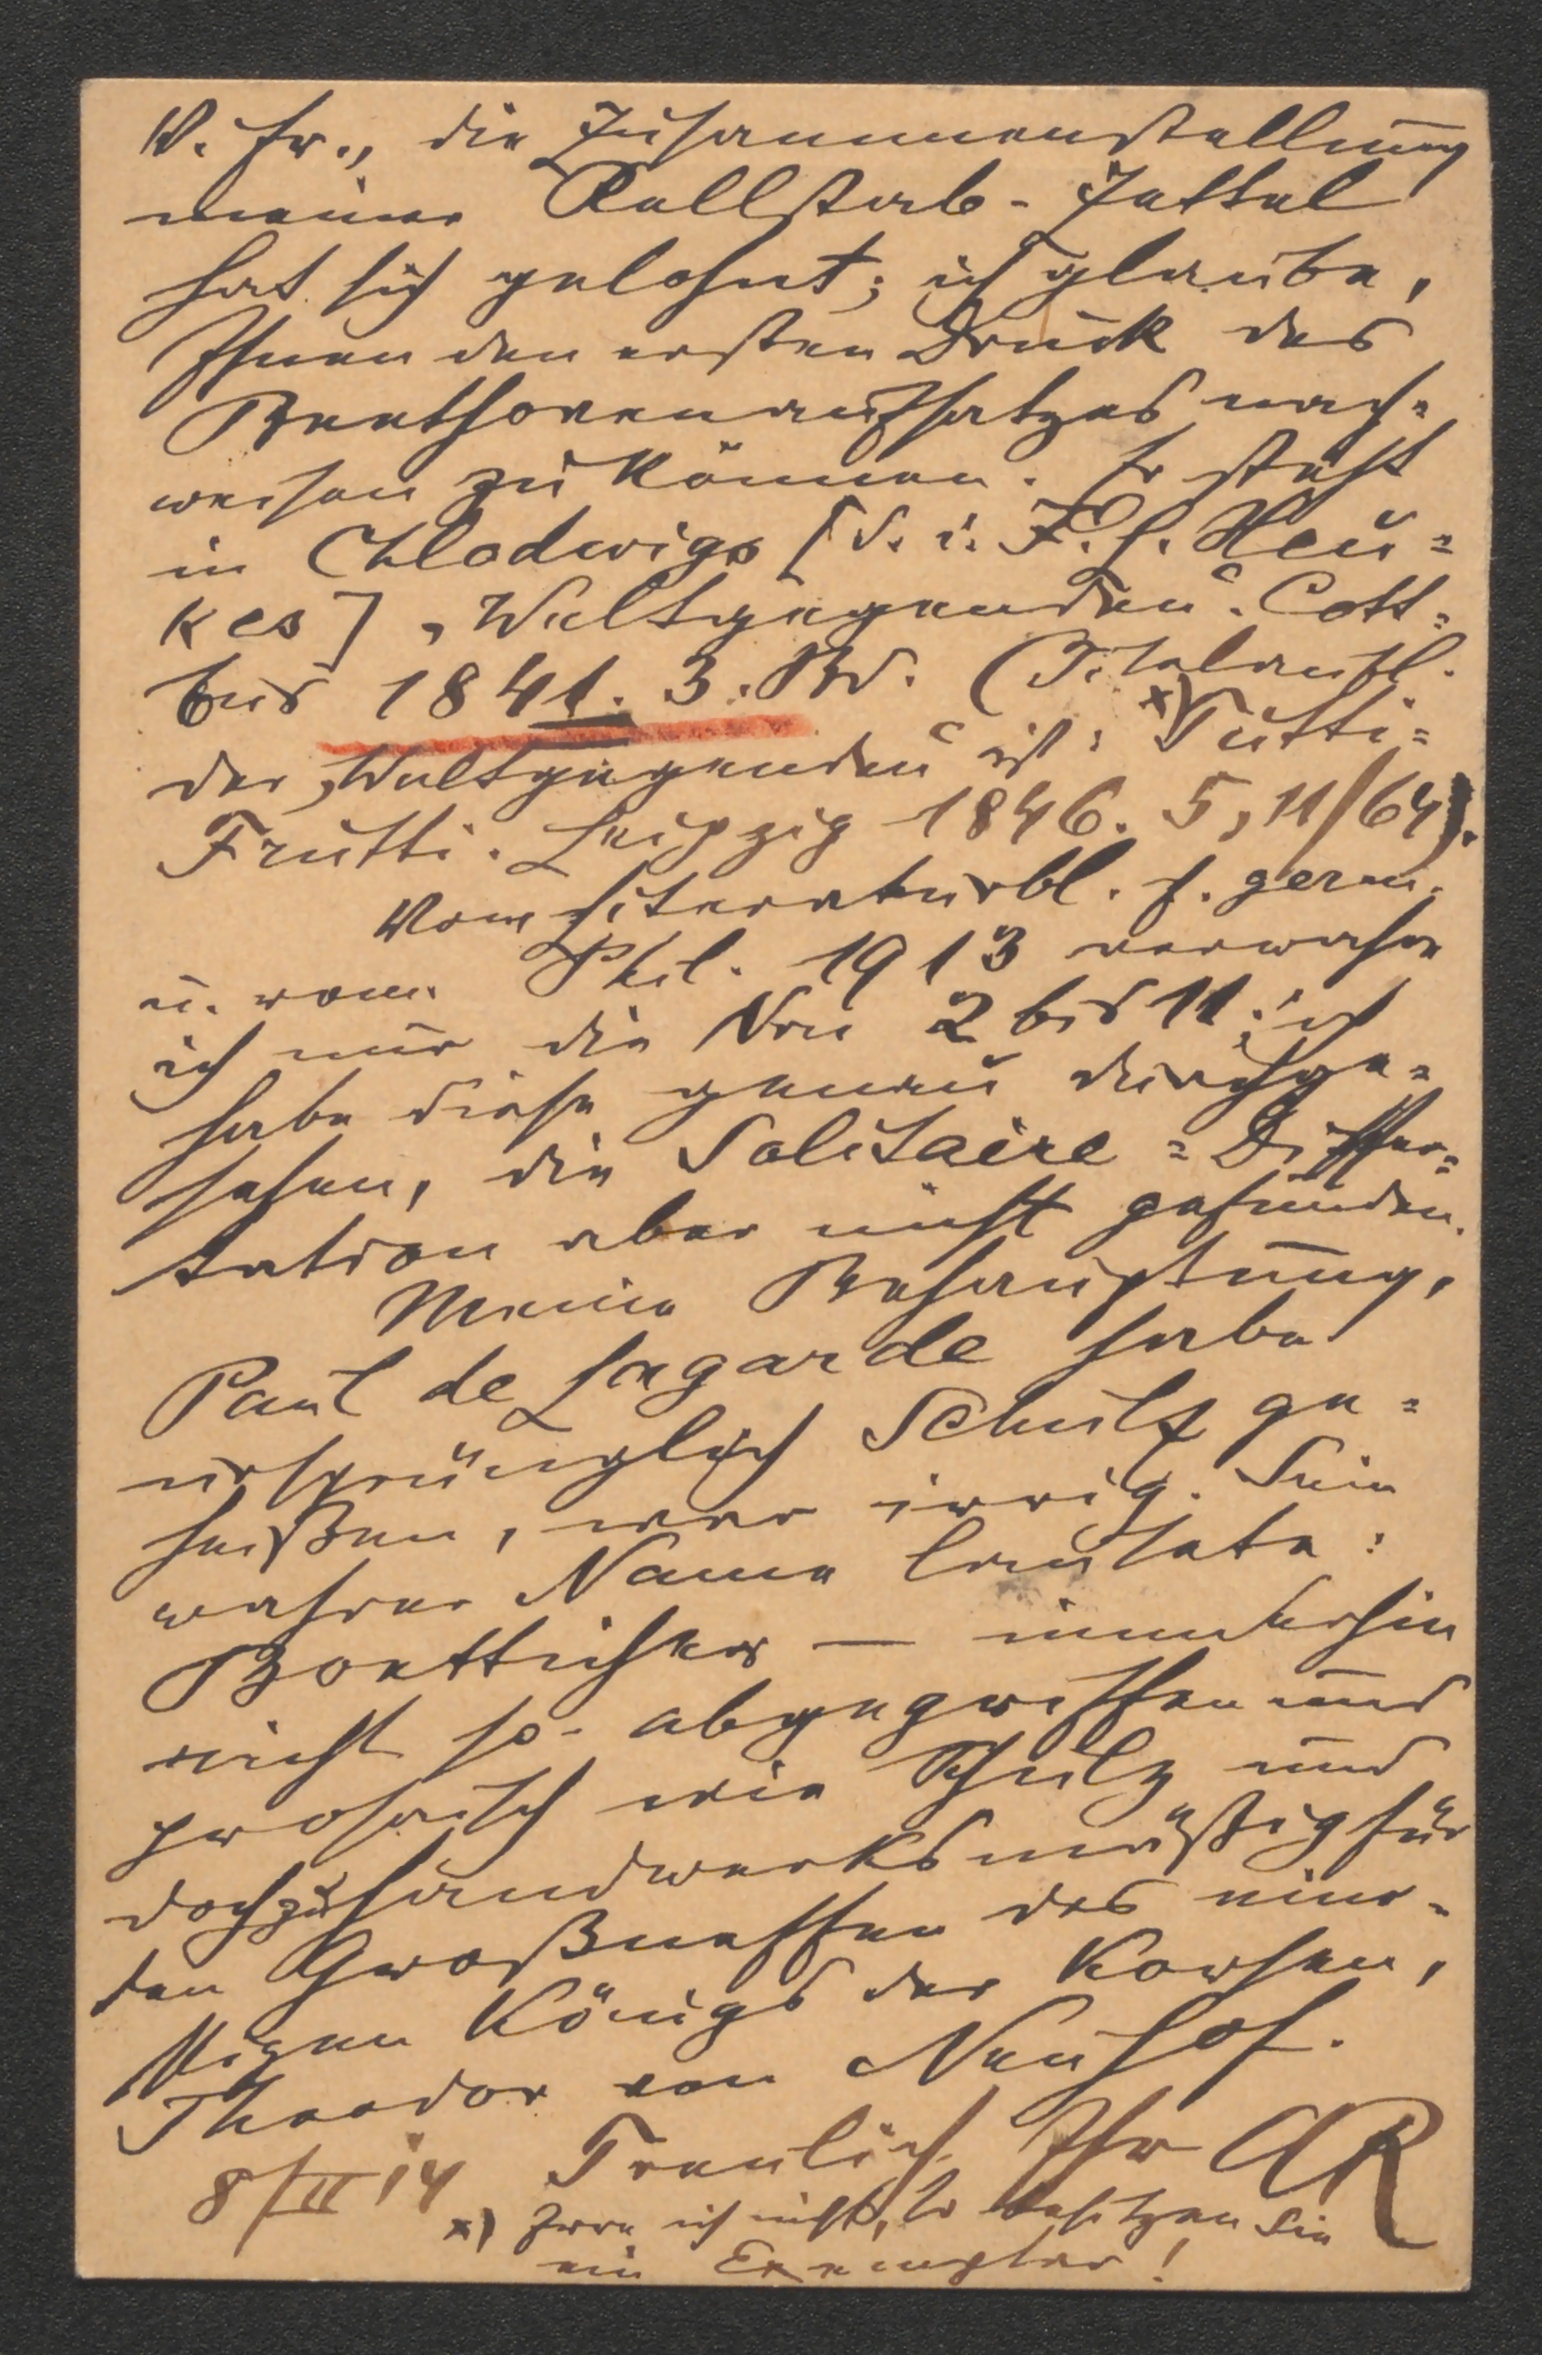 V. Fr., die Zusammenstellung
meiner Rellstab-Zettel
hat sich gelohnt; ich glaube,
Ihnen den ersten Druck des
Beethovenaufsatzes nach=
weisen zu können. Er steht
in Chlodwigs [d. i. F. L. Heu=
kes] „Weltgegenden“. Cott=
bus 1841. 3. Bd. (Titelaufl.
der „Weltgegenden“ ist: x) Tutti=
Frutti. Leipzig 1846. 5, 11/64).
Vom Literaturbl. f. germ.
u. rom. Phil. 1913 verwahre
ich nur die Nrn 2 bis 11; ich
habe diese genau durchge=
sehen, die Solitaire=Disser=
tation aber nicht gefunden.
Meine Behauptung,
Paul de Lagarde habe
ursprünglich Schulz ge=
heißen, war irrig. Sein
wahrer Name lautete:
Boetticher — immerhin
nicht so abgegriffen und
prosaisch wie Schulz und
doch zu handwerksmäßig für
den Großneffen des eins=
tigen Königs der Korsen,
Theodor von Neuhof.
Treulich Ihr AR
8/II 14
x) Irre ich nicht, so besitzen Sie
ein Exemplar!